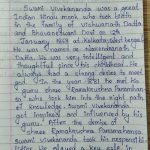 Swami Vivekananda was a great
Indian Hindu monk who took birth
in the family of Vishwanath Dutta
and Bhuvaneswari Devi on 12th
January 1863 at Kolkata, West Bengal.
He was named as Narendranath
Dutta. He was very intelligent and
thoughtful since his childhood. He
always had a strong desire to meet
god. In the year 1881 he met his
guru shree Ramakrishna Paramhansa
who took him into the right path
of knowledge. Swami Vivekananda
got inspired and influenced by his
guru. After the demise of
shree Ramakrishna Paramhansa
Swami Vivekananda took his responsibilities